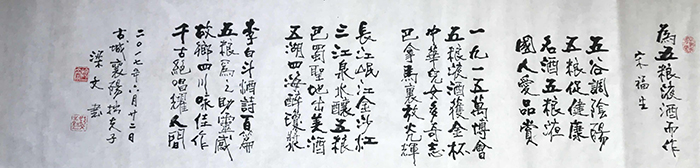 為五粮液酒而作
宋福生
五谷調陰陽
五粮促健康
名酒五粮液
國人爱品賞
一九一五萬博會
五粮液酒獲金杯
中華兒女多奇志
巴拿馬裏放光輝
長江岷江金沙江
三江泉水釀五粮
巴蜀聖地出美酒
五湖四海醉瓊漿
李白斗酒詩百篇
五粮為之助靈感
故鄉四川咏佳作
千古絕唱耀人間
二〇一七年六月廿二日
古城襄陽拙夫子
梁文